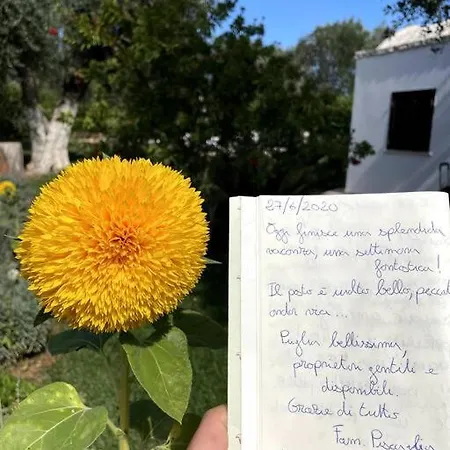 27/6/2020
Oggi finisce una splendida
vacanza, una settimana
fantastica!
Il posto è molto bello, peccato
andar via...
Puglia bellissima,
proprietari gentili e
disponibili.
Grazie di tutto
Fam.